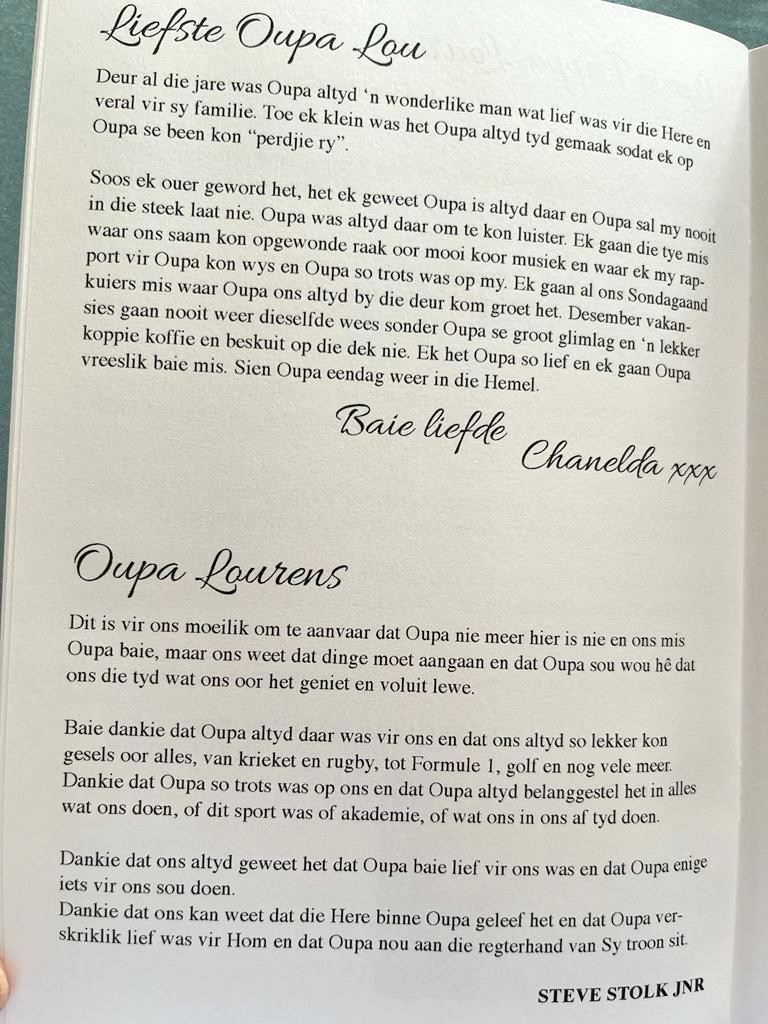 Liefste Oupa Lou
Deur al die jare was Oupa altyd ‘n wonderlike man wat lief was vir die Here en
veral vir sy familie. Toe ek klein was het Oupa altyd tyd gemaak sodat ek op
Oupa se been kon “perdjie ry”.
Soos ek ouer geword het, het ek geweet Oupa is altyd daar en Oupa sal my nooit
in die steek laat nie. Oupa was altyd daar om te kon luister. Ek gaan die tye mis
waar ons saam kon opgewonde raak oor mooi koor musiek en waar ek my rap-
port vir Oupa kon wys en Oupa so trots was op my. Ek gaan al ons Sondagaand
kuiers mis waar Oupa ons altyd by die deur kom groet het. Desember vakan-
sies gaan nooit weer dieselfde wees sonder Oupa se groot glimlag en ‘n lekker
koppie koffie en beskuit op die dek nie. Ek het Oupa so lief en ek gaan Oupa
vreeslik baie mis. Sien Oupa eendag weer in die Hemel.
Baie liefde
Chanelda xxx
Oupa Lourens
Dit is vir ons moeilik om te aanvaar dat Oupa nie meer hier is nie en ons mis
Oupa baie, maar ons weet dat dinge moet aangaan en dat Oupa sou wou hê dat
ons die tyd wat ons oor het geniet en voluit lewe.
Baie dankie dat Oupa altyd daar was vir ons en dat ons altyd so lekker kon
gesels oor alles, van krieket en rugby, tot Formule 1, golf en nog vele meer.
Dankie dat Oupa so trots was op ons en dat Oupa altyd belanggestel het in alles
wat ons doen, of dit sport was of akademie, of wat ons in ons af tyd doen.
Dankie dat ons altyd geweet het dat Oupa baie lief vir ons was en dat Oupa enige
iets vir ons sou doen.
Dankie dat ons kan weet dat die Here binne Oupa geleef het en dat Oupa ver-
skriklik lief was vir Hom en dat Oupa nou aan die regterhand van Sy troon sit.
STEVE STOLK JNR